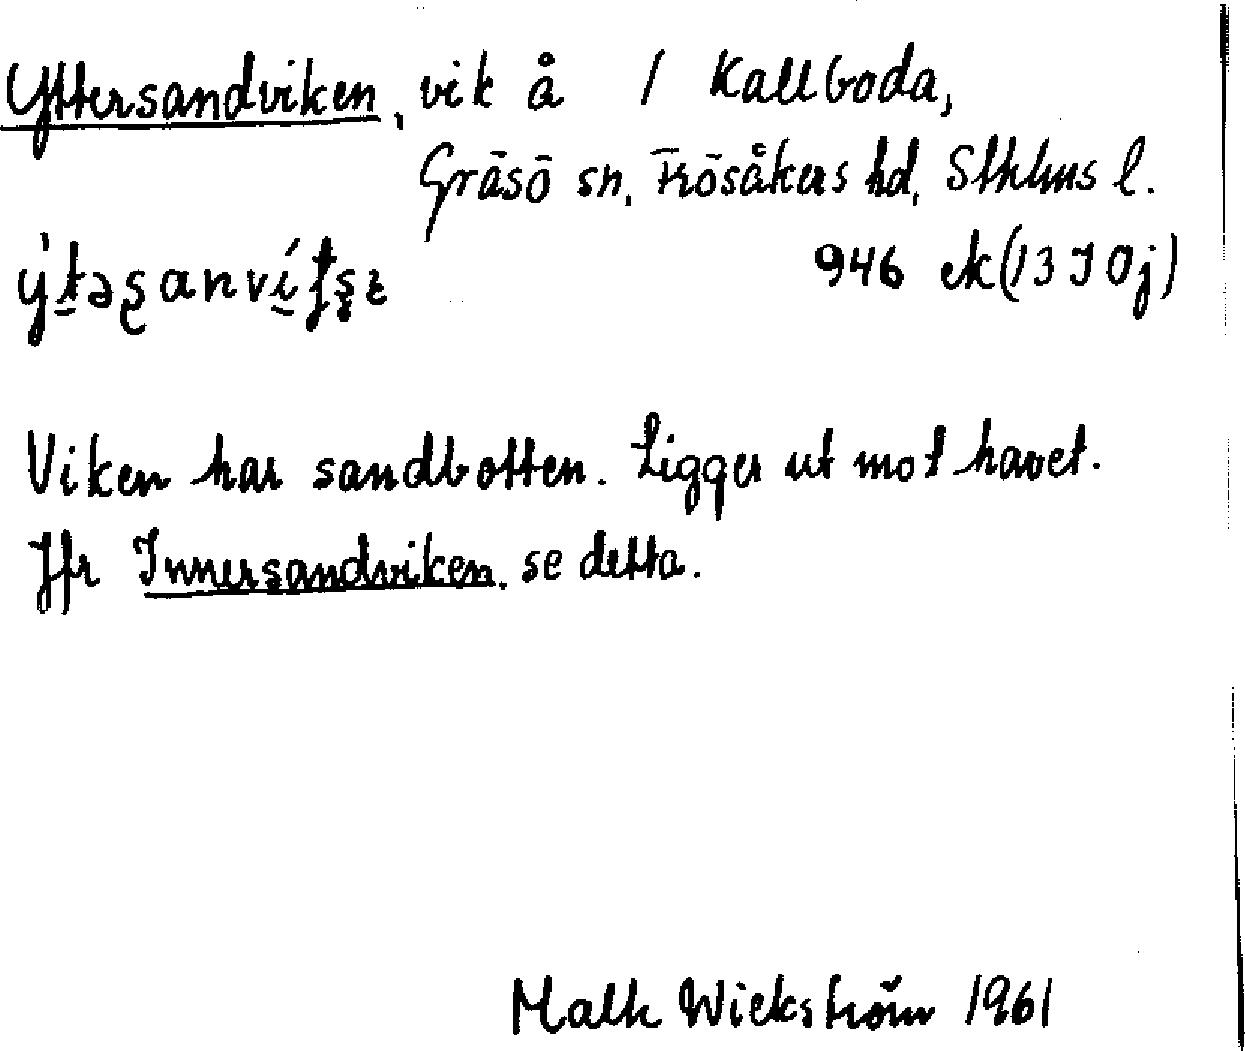 Yttersandviken, vik å / Kallboda,
Gräsö sn, Frösåkers hd, Sthlms l.
946 ek (13 I 0j)
Viken har sandbotten. Ligger ut mot havet.
Jfr Innersandviken, se detta.
Wickström 1961